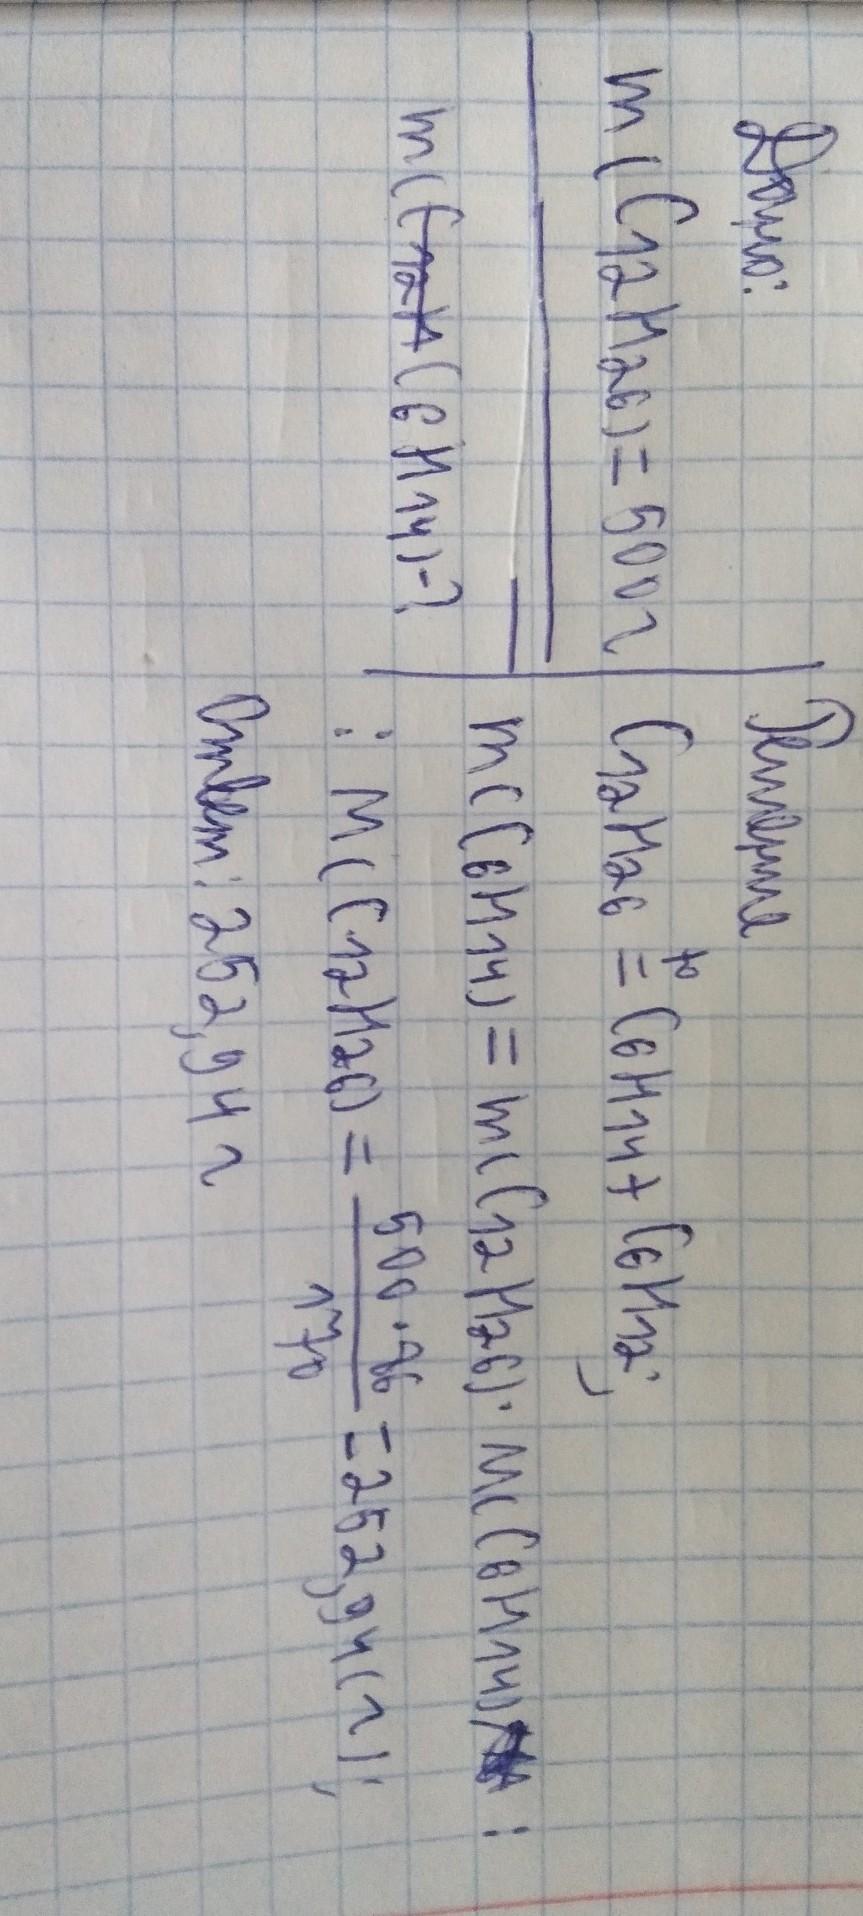 Дано:
m(C12H26)=500г
m(C12H C6H14)-?
Решение
C12H26 t° = C6H14 + C6H12;
m(C6H14) = m(C12H26) · M(C6H14) :
: M(C12H26) = 500·86 / 170 = 252,94(г);
Ответ: 252,94 г